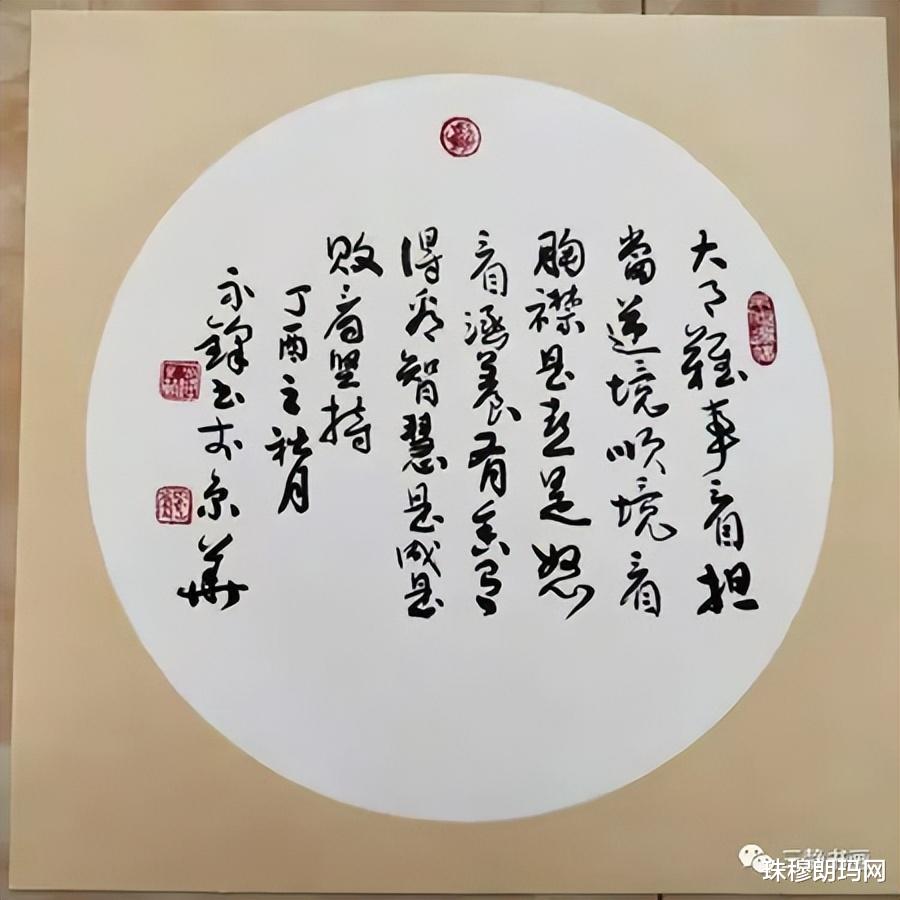 大事難事看担
當逆境順境看
胸襟是喜是怒
看涵養有舍有
得看智慧是成是
敗看坚持
丁酉之秋月
永鋒书於京華
珠穆朗玛网